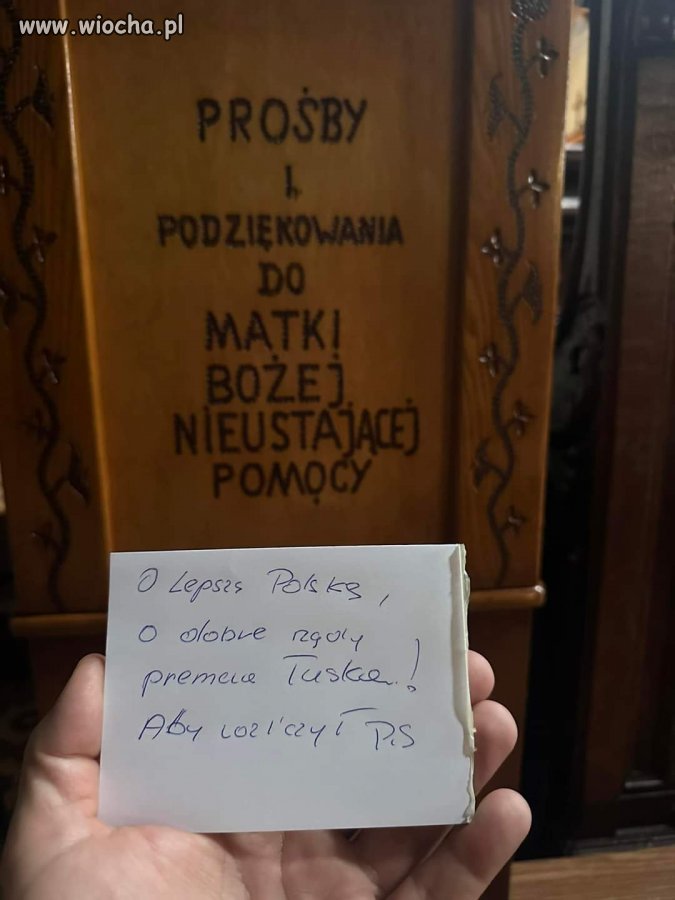 www.wiocha.pl
PROŚBY
I
PODZIĘKOWANIA
DO
MATKI
BOŻEJ
NIEUSTAJĄCEJ
POMOCY
O Lepszą Polskę,
O dobre rządy
premiera Tuska!
Aby rozliczył PiS